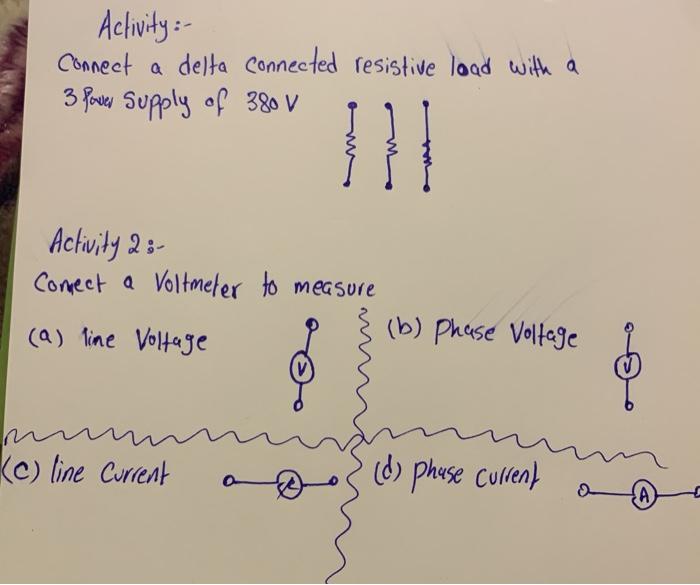 Activity :-
Connect a delta connected resistive load with a
3 Power Supply of 380 V
Activity 2 :-
Connect a Voltmeter to measure
(a) line Voltage
V
(b) Phase Voltage
V
(c) line Current
A
(d) phase current
A